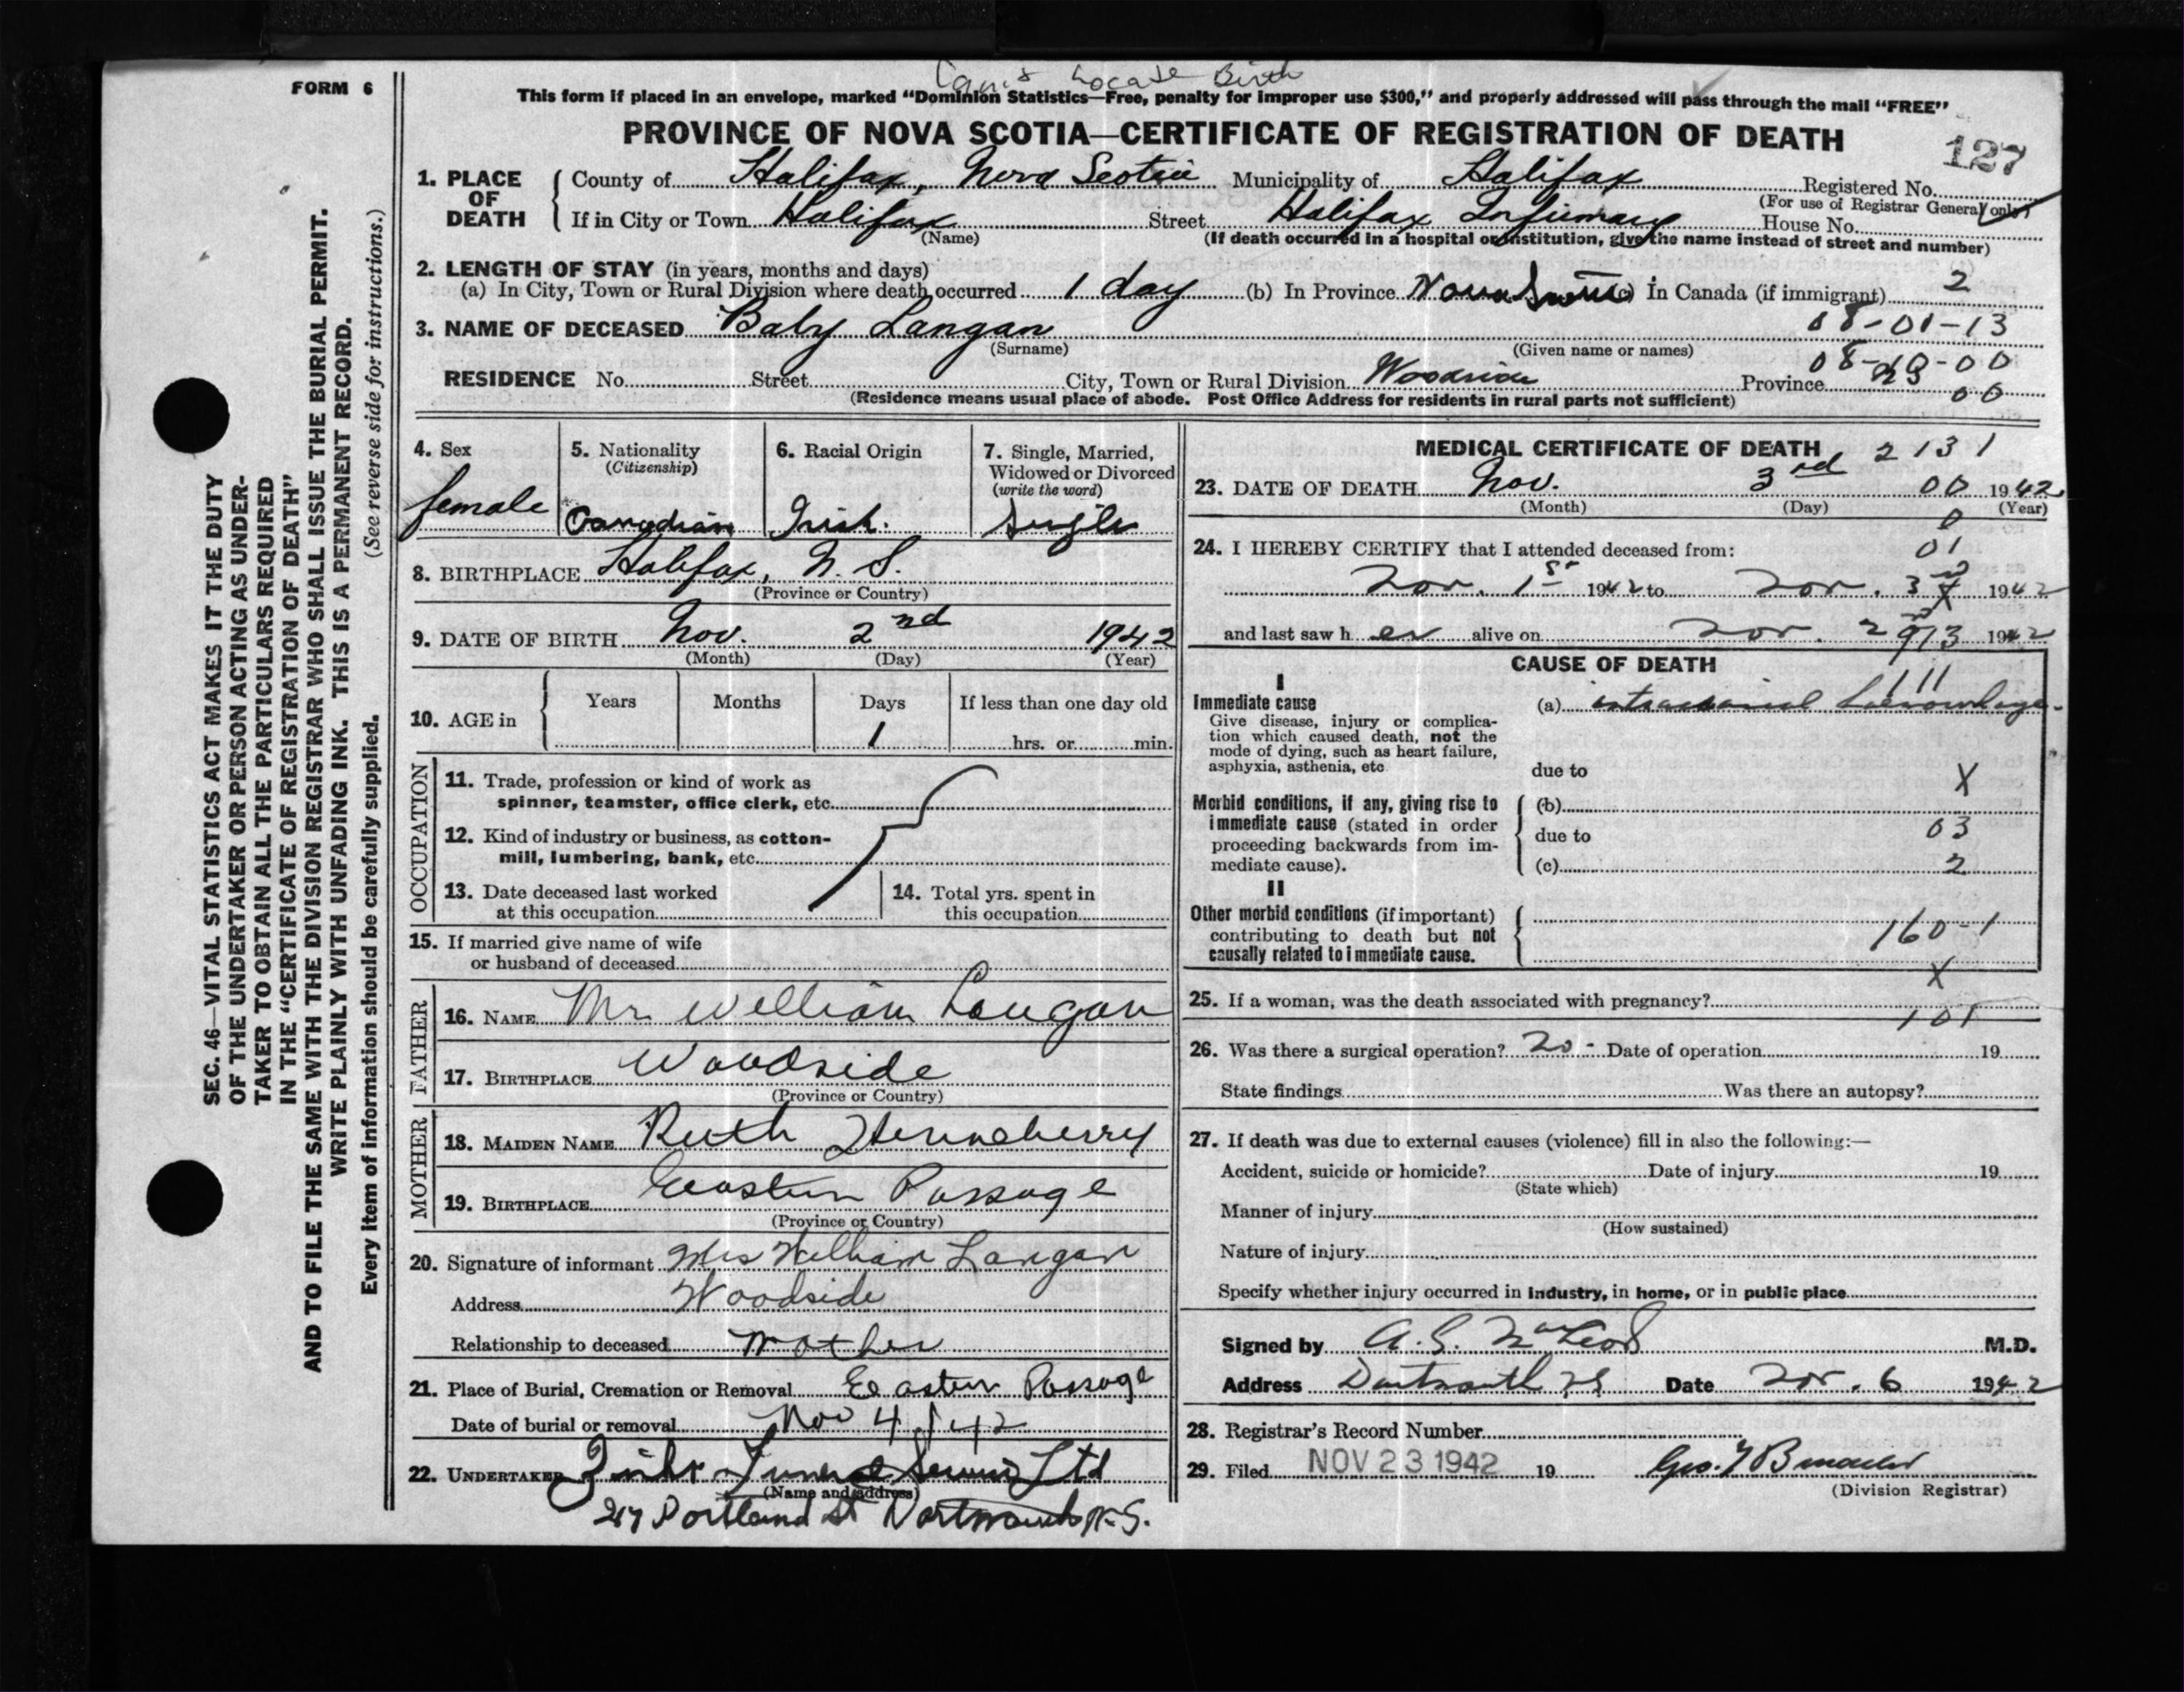 FORM 6
Can't Locate Birth
This form if placed in an envelope, marked “Dominion Statistics—Free, penalty for improper use $300,” and properly addressed will pass through the mail “FREE”
PROVINCE OF NOVA SCOTIA—CERTIFICATE OF REGISTRATION OF DEATH
127
1. PLACE OF DEATH
County of Halifax, Nova Scotia Municipality of Halifax Registered No.
(For use of Registrar General only)
If in City or Town Halifax Street Halifax Infirmary House No.
(Name) (If death occurred in a hospital or institution, give the name instead of street and number)
2. LENGTH OF STAY (in years, months and days)
(a) In City, Town or Rural Division where death occurred 1 day (b) In Province Nova Scotia (c) In Canada (if immigrant) 2
3. NAME OF DECEASED Baby Langan 08-01-13
(Surname) (Given name or names)
08-19-00
RESIDENCE No. Street City, Town or Rural Division Woodside Province 23
00
(Residence means usual place of abode. Post Office Address for residents in rural parts not sufficient)
4. Sex
female
5. Nationality
(Citizenship)
Canadian
6. Racial Origin
Irish.
7. Single, Married,
Widowed or Divorced
(write the word)
Single
8. BIRTHPLACE Halifax, N. S.
(Province or Country)
9. DATE OF BIRTH Nov. 2nd 1942
(Month) (Day) (Year)
10. AGE in
Years Months Days If less than one day old
1 hrs. or min.
OCCUPATION
11. Trade, profession or kind of work as
spinner, teamster, office clerk, etc.
12. Kind of industry or business, as cotton-
mill, lumbering, bank, etc.
13. Date deceased last worked
at this occupation
14. Total yrs. spent in
this occupation
15. If married give name of wife
or husband of deceased
FATHER
16. NAME Mr. William Langan
17. BIRTHPLACE Woodside
(Province or Country)
MOTHER
18. MAIDEN NAME Ruth Henneberry
19. BIRTHPLACE Eastern Passage
(Province or Country)
20. Signature of informant Mrs William Langan
Address Woodside
Relationship to deceased Mother
21. Place of Burial, Cremation or Removal Eastern Passage
Date of burial or removal Nov 4 1942
22. UNDERTAKER Funeral Service Ltd
(Name and address)
217 Portland St Dartmouth N.S.
MEDICAL CERTIFICATE OF DEATH 2131
23. DATE OF DEATH Nov. 3rd 00 1942
(Month) (Day) (Year)
0
24. I HEREBY CERTIFY that I attended deceased from: 01
Nov. 1st 1942 to Nov. 3rd 1942
and last saw her alive on Nov. 2nd 1942
913
CAUSE OF DEATH
111
I
Immediate cause
Give disease, injury or complica-
tion which caused death, not the
mode of dying, such as heart failure,
asphyxia, asthenia, etc
(a) intracranial haemorrhage
due to
X
Morbid conditions, if any, giving rise to
immediate cause (stated in order
proceeding backwards from im-
mediate cause).
(b)
due to 03
(c) 2
II
Other morbid conditions (if important)
contributing to death but not
causally related to immediate cause.
160-1
X
25. If a woman, was the death associated with pregnancy?
101
26. Was there a surgical operation? no - Date of operation 19
State findings Was there an autopsy?
27. If death was due to external causes (violence) fill in also the following:—
Accident, suicide or homicide? Date of injury 19
(State which)
Manner of injury
(How sustained)
Nature of injury
Specify whether injury occurred in industry, in home, or in public place
Signed by A. G. MacLeod M.D.
Address Dartmouth NS Date Nov. 6 1942
28. Registrar's Record Number
29. Filed NOV 23 1942 19
(Division Registrar)
SEC. 46—VITAL STATISTICS ACT MAKES IT THE DUTY
OF THE UNDERTAKER OR PERSON ACTING AS UNDER-
TAKER TO OBTAIN ALL THE PARTICULARS REQUIRED
IN THE “CERTIFICATE OF REGISTRATION OF DEATH”
AND TO FILE THE SAME WITH THE DIVISION REGISTRAR WHO SHALL ISSUE THE BURIAL PERMIT.
WRITE PLAINLY WITH UNFADING INK. THIS IS A PERMANENT RECORD.
Every item of information should be carefully supplied. (See reverse side for instructions.)